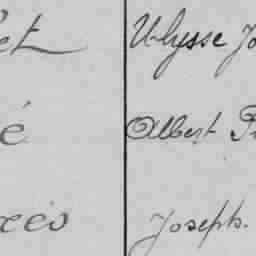 et Ulysse Jo
é Albert
Joseph.